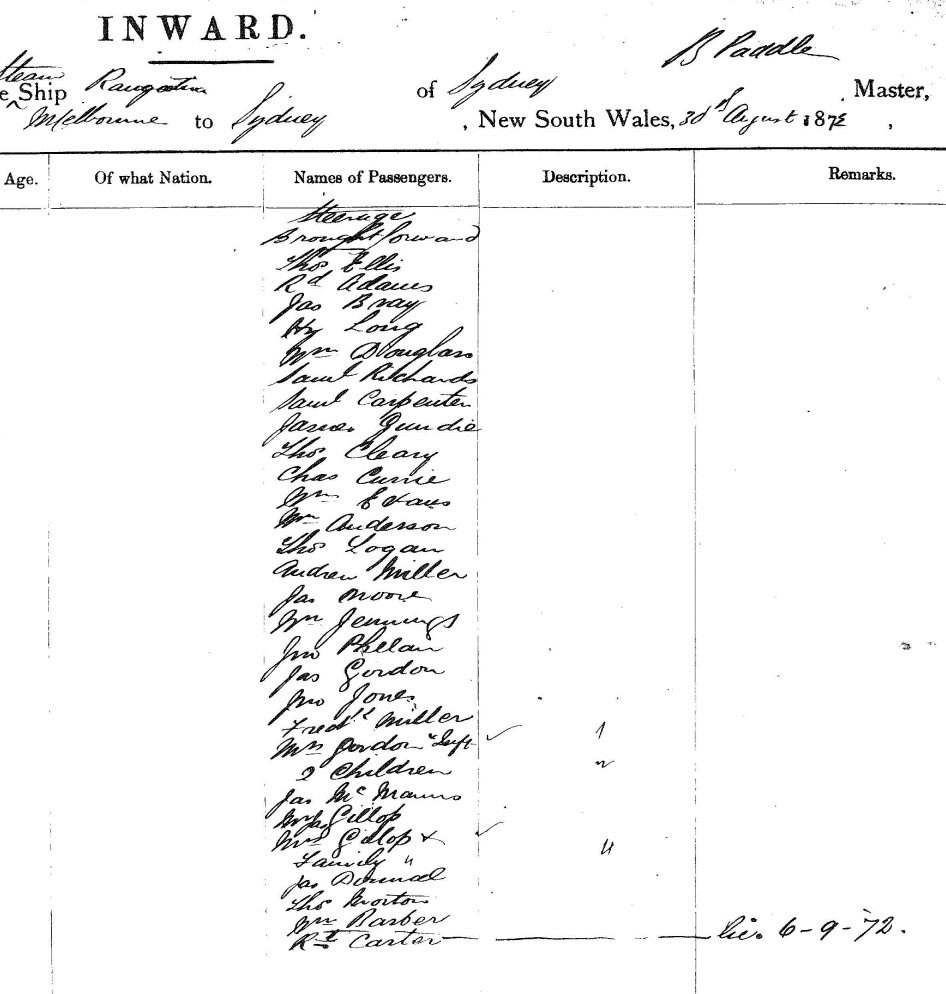 INWARD.
B Paddle
Steam
e Ship Rangatira of Sydney Master,
Melbourne to Sydney , New South Wales, 30th August 1872 ,
Age. Of what Nation. Names of Passengers. Description. Remarks.
Steerage
Brought forward
Thos Ellis
Rd Adams
Jas Bray
Hy Long
Wm Douglass
Saml Richards
Saml Carpenter
James Gundie
Thos Cleary
Chas Currie
Wm Evans
Wm Anderson
Thos Logan
Andrew Miller
Jas Moore
Wm Jennings
Jno Phelan
Jas Gordon
Jno Jones
Fredk Miller
Mrs Gordon & Inft 1
2 Children 2
Jas McManus
Gillop
Mrs Gillop &
Family 4 4
Jas
Thos Morton
Wm Barber
Rd Carter 6-9-72.